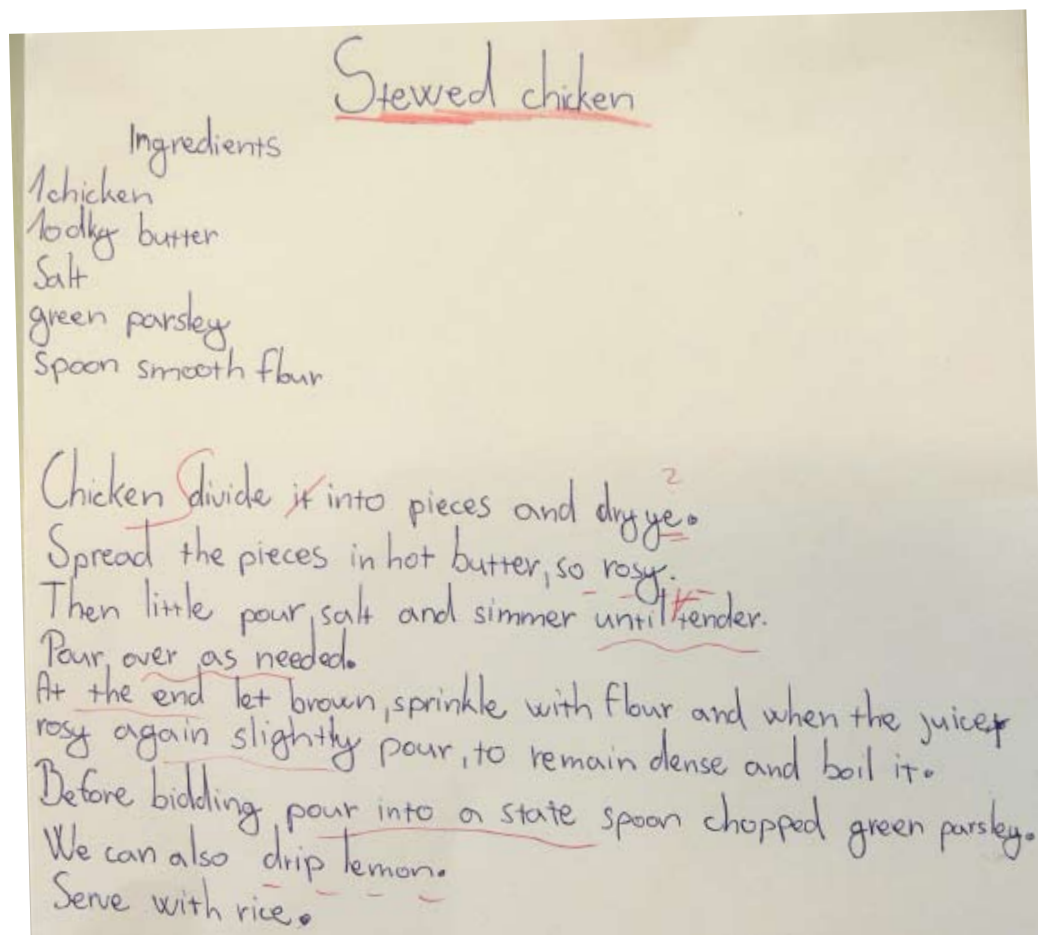 Stewed chicken
Ingredients
1chicken
10dkg butter
Salt
green parsley
Spoon smooth flour
Chicken divide it into pieces and dry ye.
?
Spread the pieces in hot butter, so rosy.
Then little pour, salt and simmer until tender.
Pour, over as needed.
At the end let brown, sprinkle with flour and when the juice
rosy again slightly pour, to remain dense and boil it.
Before bidding pour into a state spoon chopped green parsley.
We can also drip lemon.
Serve with rice.